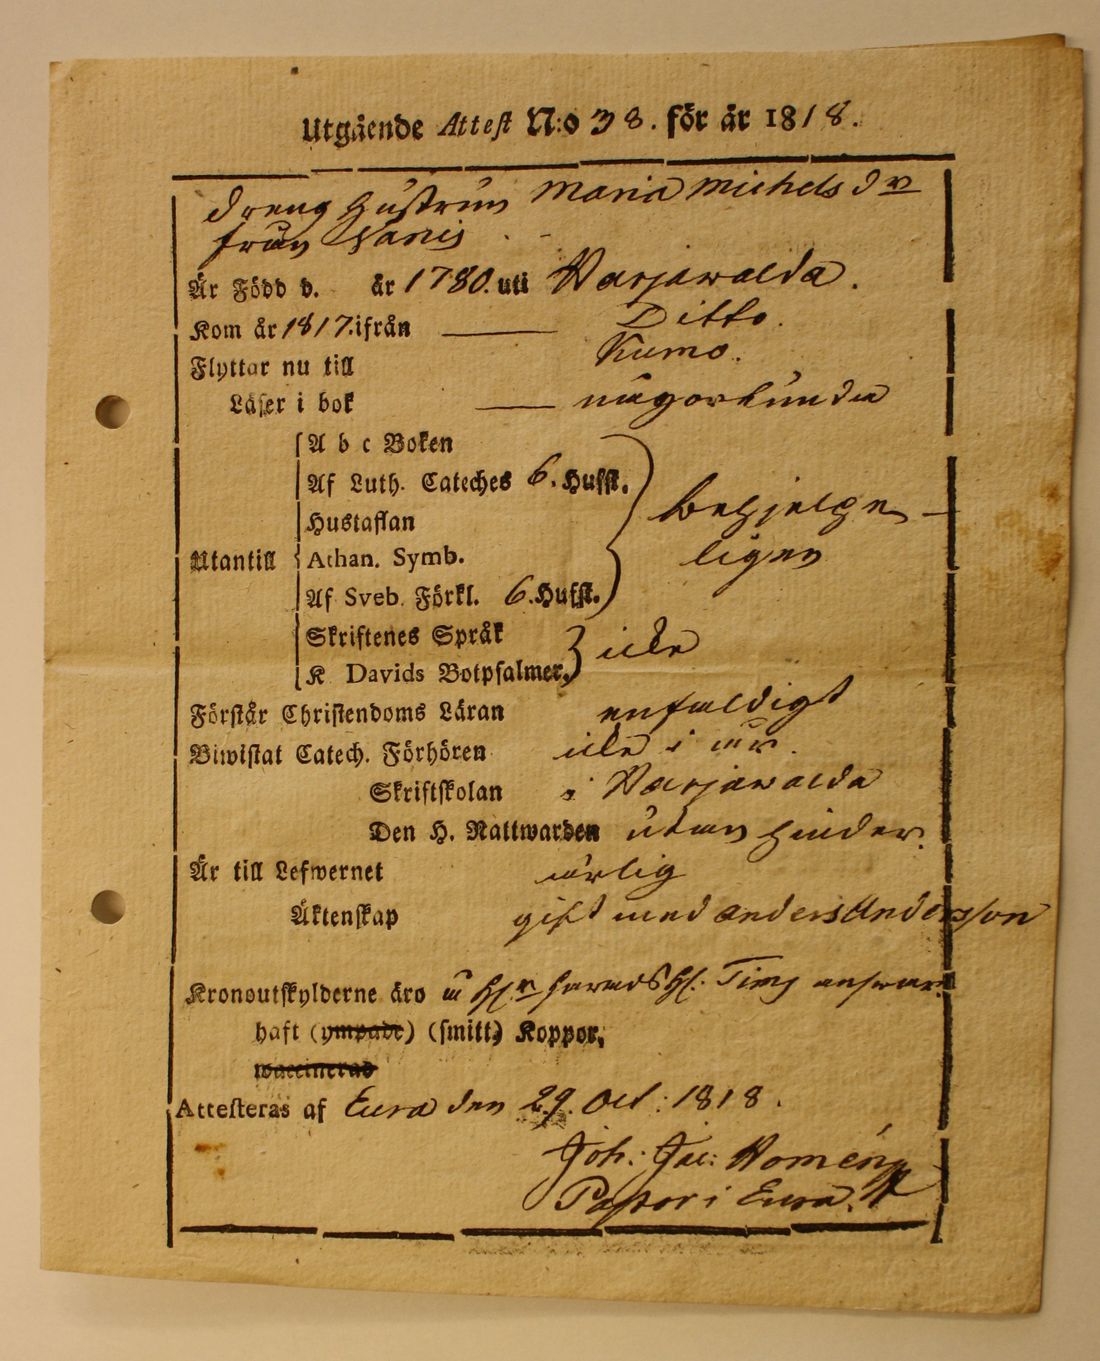 Utgående Attest N:o 38. för år 1818.
Dreng Hustrun Maria Michelsdr
från
Är Född d. år 1780. uti Warjawalda.
Kom år 1817. ifrån — Ditto.
Flyttar nu till Kumo.
Läser i bok — någorlunda
A b c Boken
Af Luth. Cateches 6. Hufst.
Hustaflan
behjelpe-
Utantill Athan. Symb.
ligen
Af Sveb. Förkl. 6. Hufst.
Skriftenes Språk
icke
K Davids Botpsalmer,
Förstår Christendoms Läran enfaldigt
Biwistat Catech. Förhören icke i år.
Skriftskolan i Warjawalda
Den H. Nattwarden utan hinder.
Är till Lefwernet ärlig
Äktenskap gift med Anders Andersson
Kronoutskylderne äro å answar.
haft (ympade) (smitt) Koppor,
waccinerad
Attesteras af Eura den 29. Oct: 1818.
Joh: Jac: Homén
Pastor i Eura.